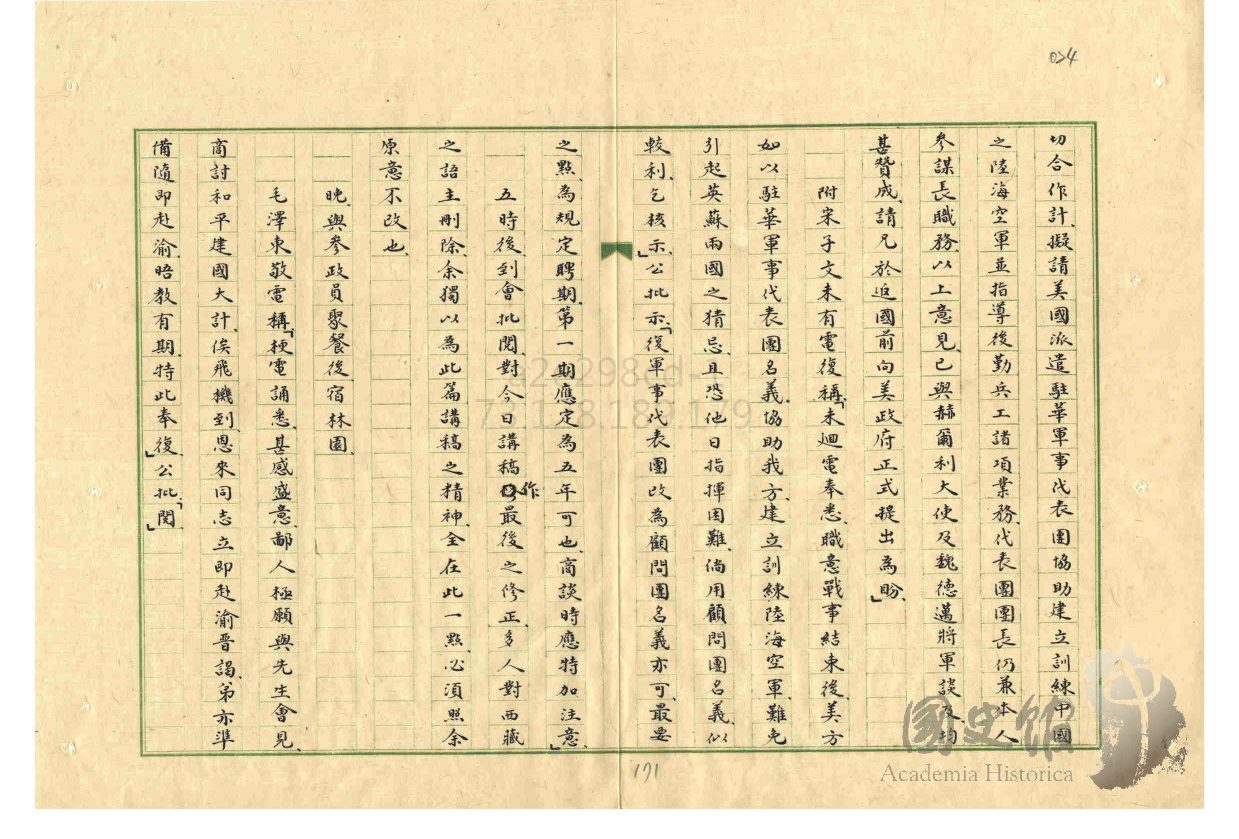 024
切合作計、擬請美國派遣駐華軍事代表團協助建立訓練中國
之陸海空軍並指導後勤兵工諸項業務、代表團團長仍兼本人
參謀長職務、以上意見、已與赫爾利大使及魏德邁將軍談及均
甚贊成、請兄於返國前向美政府正式提出為盼」
附宋子文未有電復稱「未迴電奉悉、職意戰事結束後、美方
如以駐華軍事代表團名義、協助我方、建立訓練陸海空軍、難免
引起英蘇兩國之猜忌、且恐他日指揮困難、倘用顧問團名義、似
較利、乞核示、」公批示、「復軍事代表團改為顧問團名義亦可、最要
之點為規定聘期、第一期應定為五年可也、商談時應特加注意」
五時後到會批閱、對今日講稿作最後之修正、多人對西藏
之語主刪除、余獨以為此篇講稿之精神、全在此一點、必須照余
原意不改也、
晚與參政員聚餐後、宿林園、
毛澤東敬電稱、「梗電誦悉、甚感盛意、鄙人極願與先生會見、
商討和平建國大計、俟飛機到、恩來同志立即赴渝晉謁、弟亦準
備隨即赴渝、晤教有期、特此奉復」、公批、「閱」
171
國史館
Academia Historica